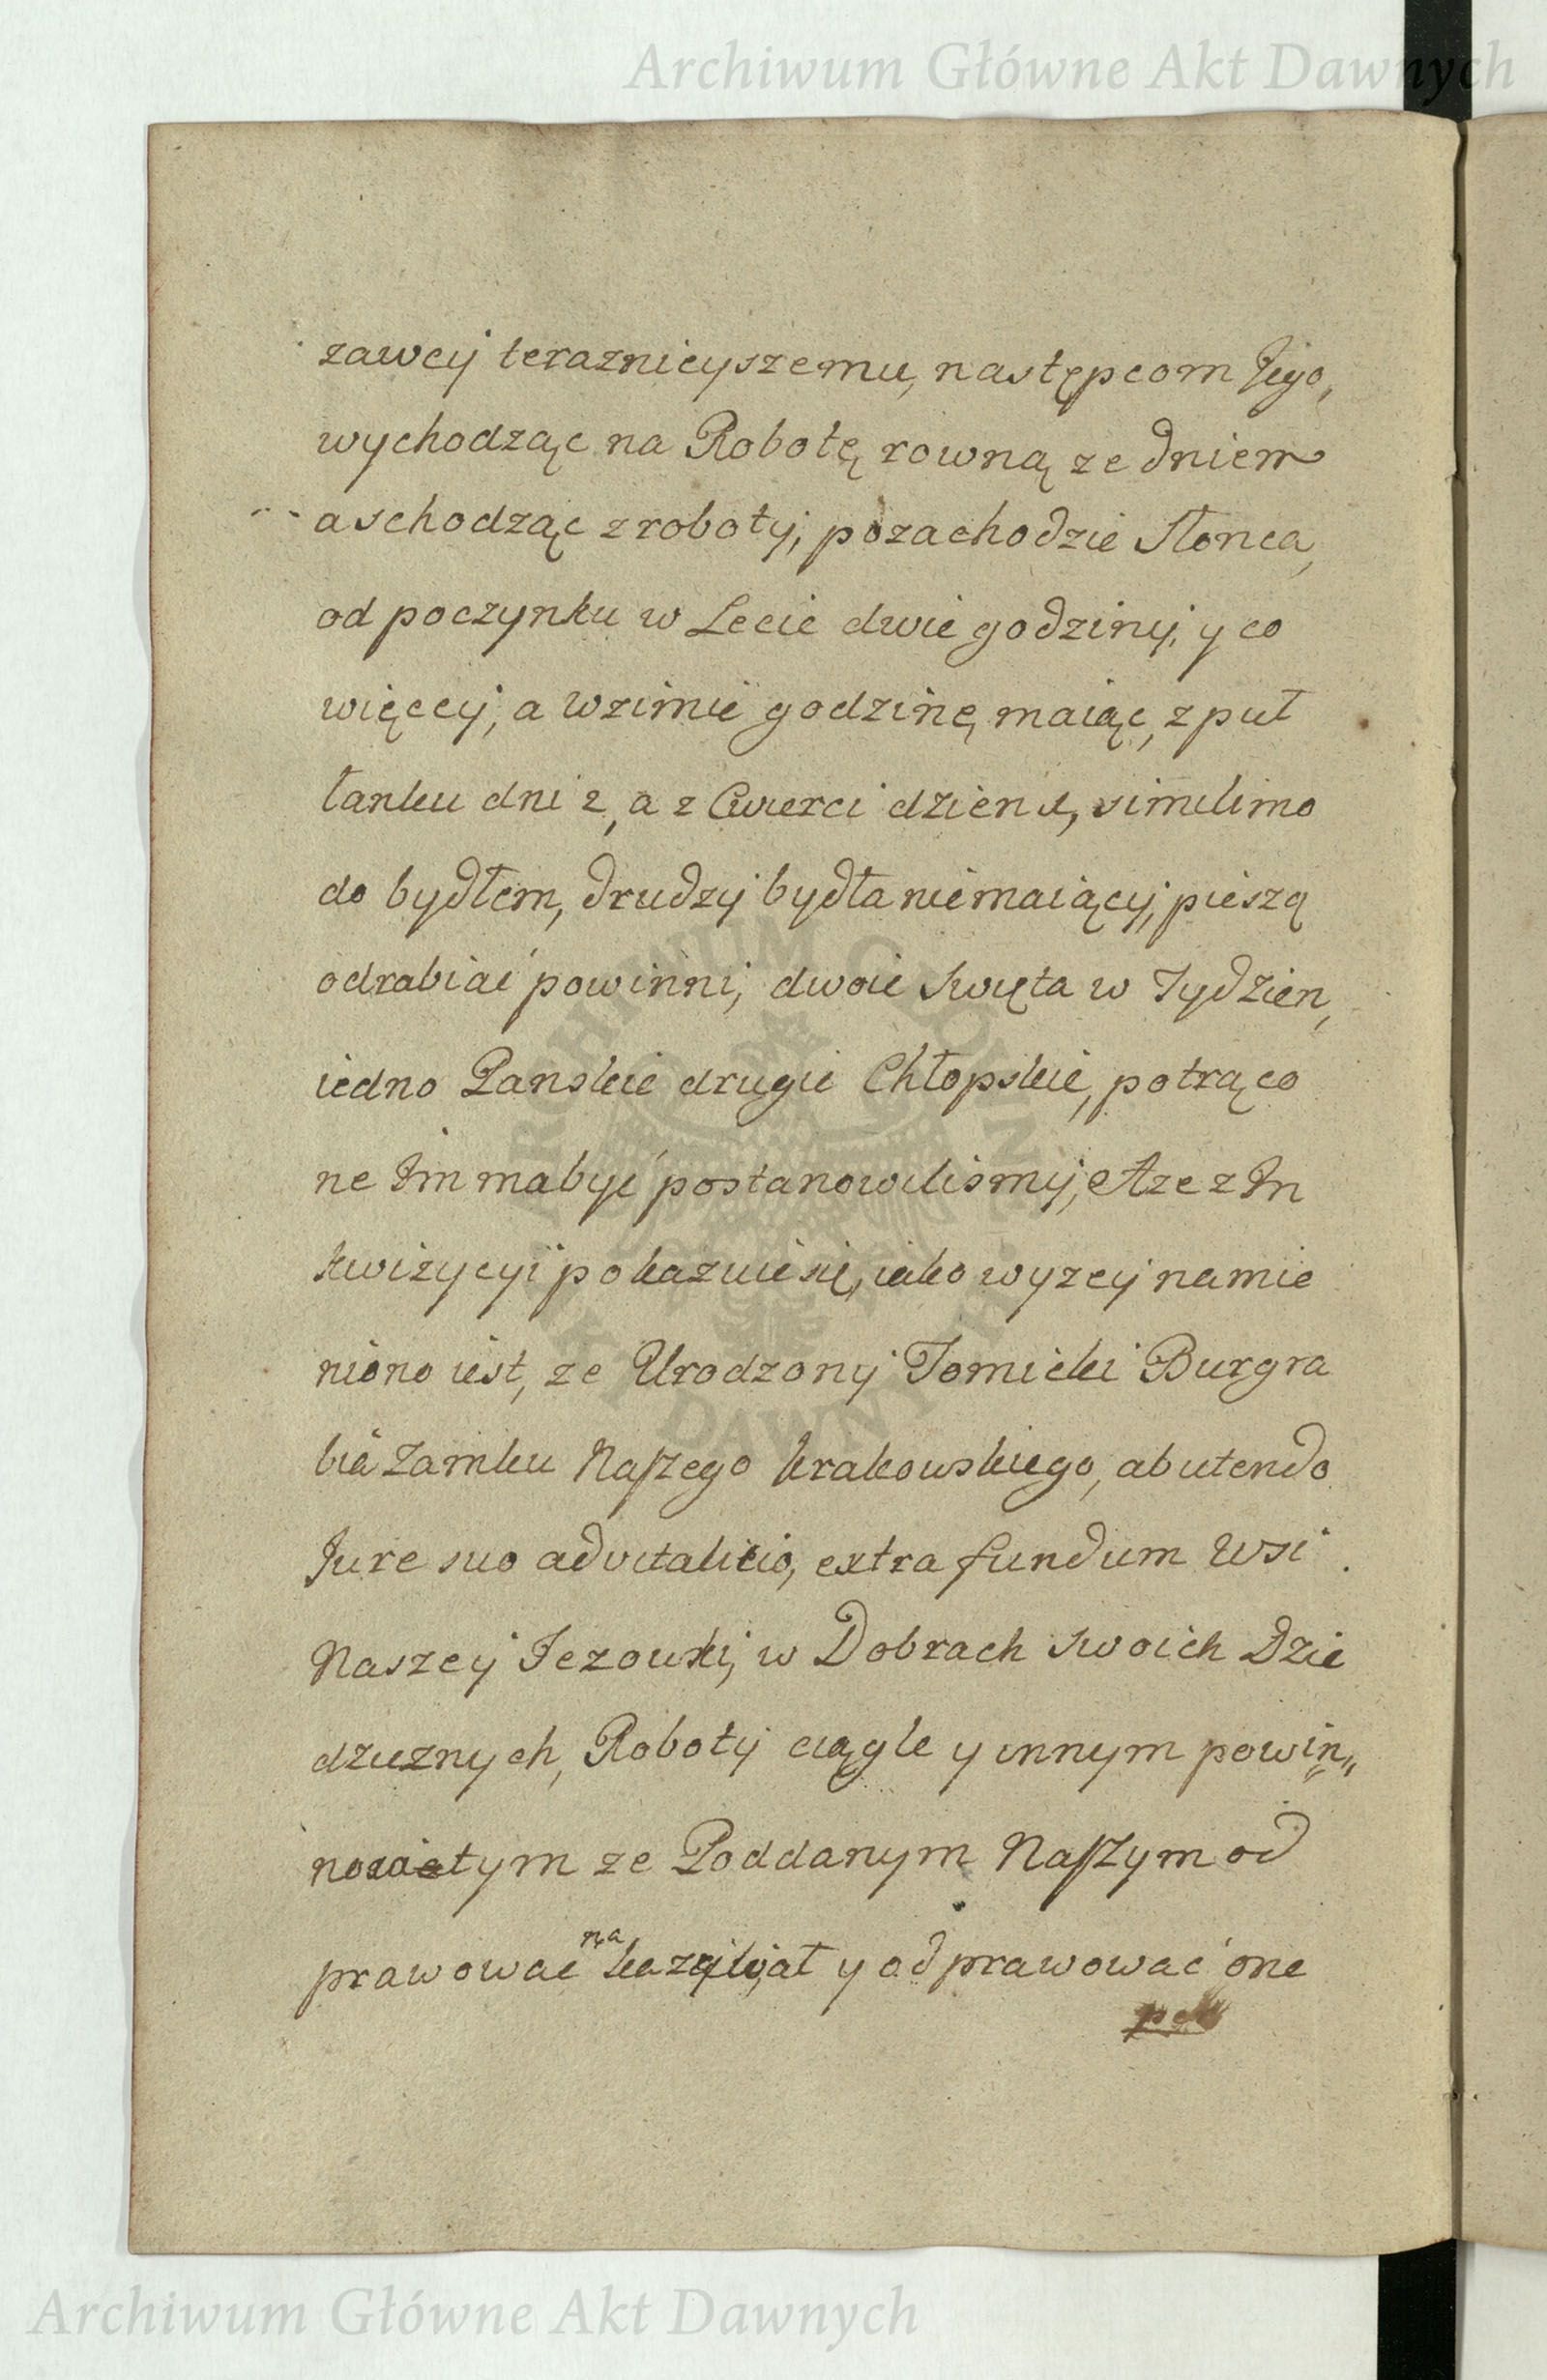 Archiwum Główne Akt Dawnych
zawcy teraznieyszemu, następcom Jego,
wychodząc na Robotę rowną ze dniem
a schodząc z roboty, po zachodzie Słonca,
odpoczynku w Lecie dwie godziny, y co
więcey, a w zimie godzinę maiąc, z puł
łanku dni 2, a z Cwierci dzien 1, simili mo
do bydłem, drudzy bydła niemaiący, pieszą
odrabiać powinni, dwoie swięta w Tydzien,
iedno Panskie drugie Chłopskie, potrąco
ne Im ma być postanowilismy, A ze z In
kwizycyi pokazuie się, iako wyzey namie
niono iest, ze Urodzony Tomicki Burgra
bia Zamku Naszego Krakowskiego, abutendo
Jure suo advitalitio, extra fundum Wsi
Naszey Jezowki, w Dobrach Swoich Dzie
dzicznych, Roboty ciągłe y innym powin„
tym ze Poddanym Naszym od
prawować na y odprawować one
ARCHIWUM GŁÓWNE AKT DAWNYCH
Archiwum Główne Akt Dawnych